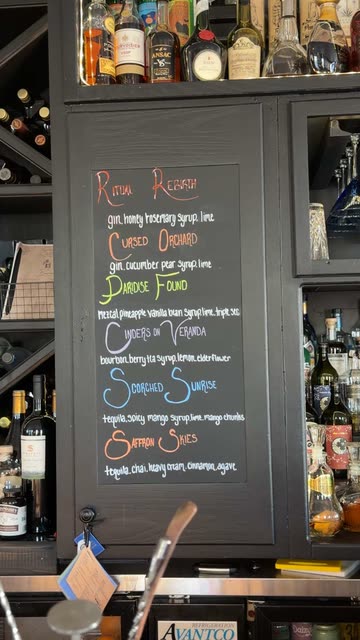 Ritual Rebirth
gin, honey rosemary syrup, lime
Cursed Orchard
gin, cucumber pear syrup, lime
Paridise Found
Mezcal, pineapple vanilla bean syrup, lime, triple sec
Cinders on Veranda
bourbon, berry tea syrup, lemon, elderflower
Scorched Sunrise
tequila, spicy mango syrup, lime, mango chunks
Saffron Skies
tequila, chai, heavy cream, cinnamon, agave
REFRIGERATION
AVANTCO